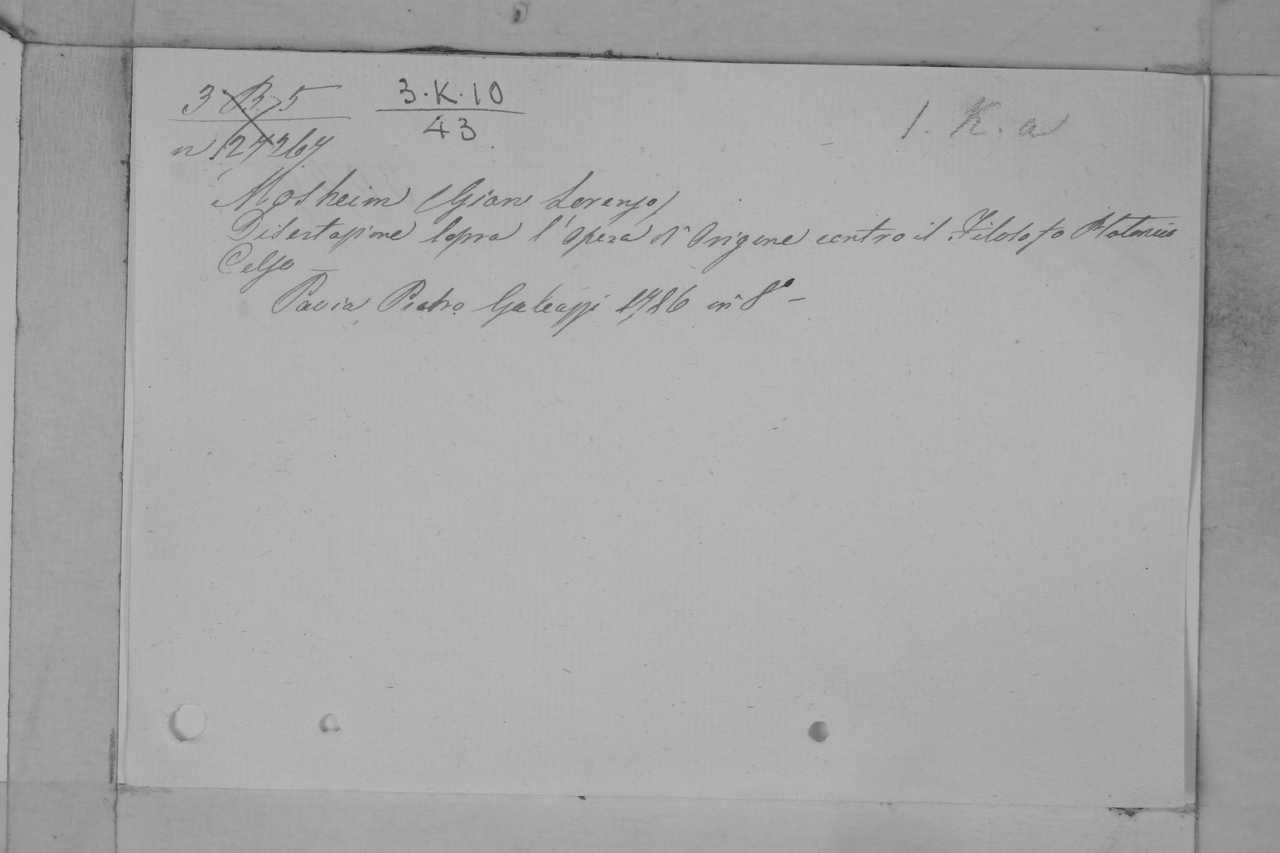 3 B. 5
n 127267
3.K.10
43
1. K. a
Mosheim (Gian Lorenzo)
Disertazione sopra l'opera di Origene contro il Filosofo Platonico
Celso —
Pavia Pietro Galeazzi 1786 in 8° -